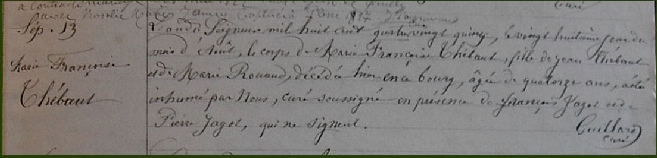 Sép. 13
Marie Françoise
Thébaut
L'an du Seigneur mil huit cent quatre vingt quinze, le vingt huitième jour du
mois d'Août, le corps de Marie Françoise Thébaut, fille de Jean Thébaut
et de Marie Rouaud, décédée hier en ce bourg, âgée de quatorze ans, a été
inhumé par Nous, curé soussigné en présence de François Jagot et de
Pierre Jagot, qui ne signent.
Guillard
curé